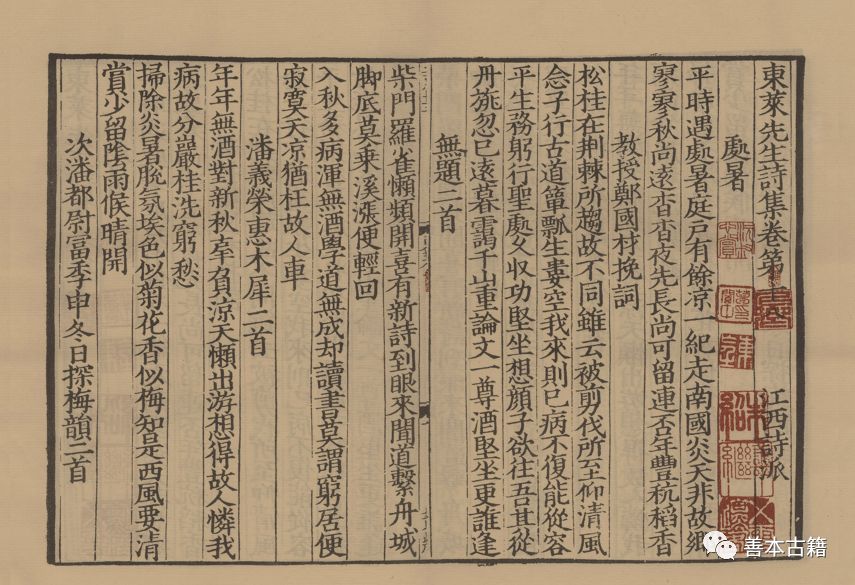 東萊先生詩集卷第十八
江西詩派
處暑
平時遇處暑庭戶有餘凉一紀走南國炎天非故鄉
寥寥秋尚遠杳杳夜先長尚可留連否年豐秔稻香
教授鄭國材挽詞
松桂在荆棘所趨故不同雖云被剪伐所至仰清風
念子行古道簞瓢生婁空我來則已病不復能從容
平生務躬行聖處久收功堅坐想顔子欲往吾其從
丹旐忽已遠暮靄千山重論文一尊酒堅坐更誰逢
無題二首
柴門羅雀懶頻開喜有新詩到眼來聞道繫舟城
脚底莫乗溪漲便輕回
入秋多病渾無酒學道無成却讀書莫謂窮居便
寂寞天凉猶枉故人車
潘義榮惠木犀二首
年年無酒對新秋辜負凉天懶出游想得故人憐我
病故分巖桂洗窮愁
掃除炎暑脫氛埃色似菊花香似梅知是西風要清
賞少留陰雨候晴開
次潘都尉富季申冬日探梅韻二首
善本古籍